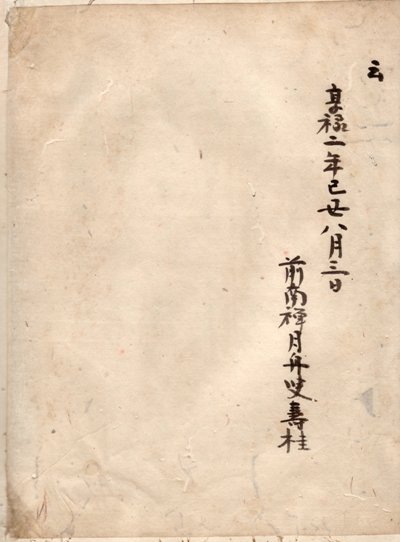 云
享禄二年己丑八月三日
前南禅月舟叟壽桂